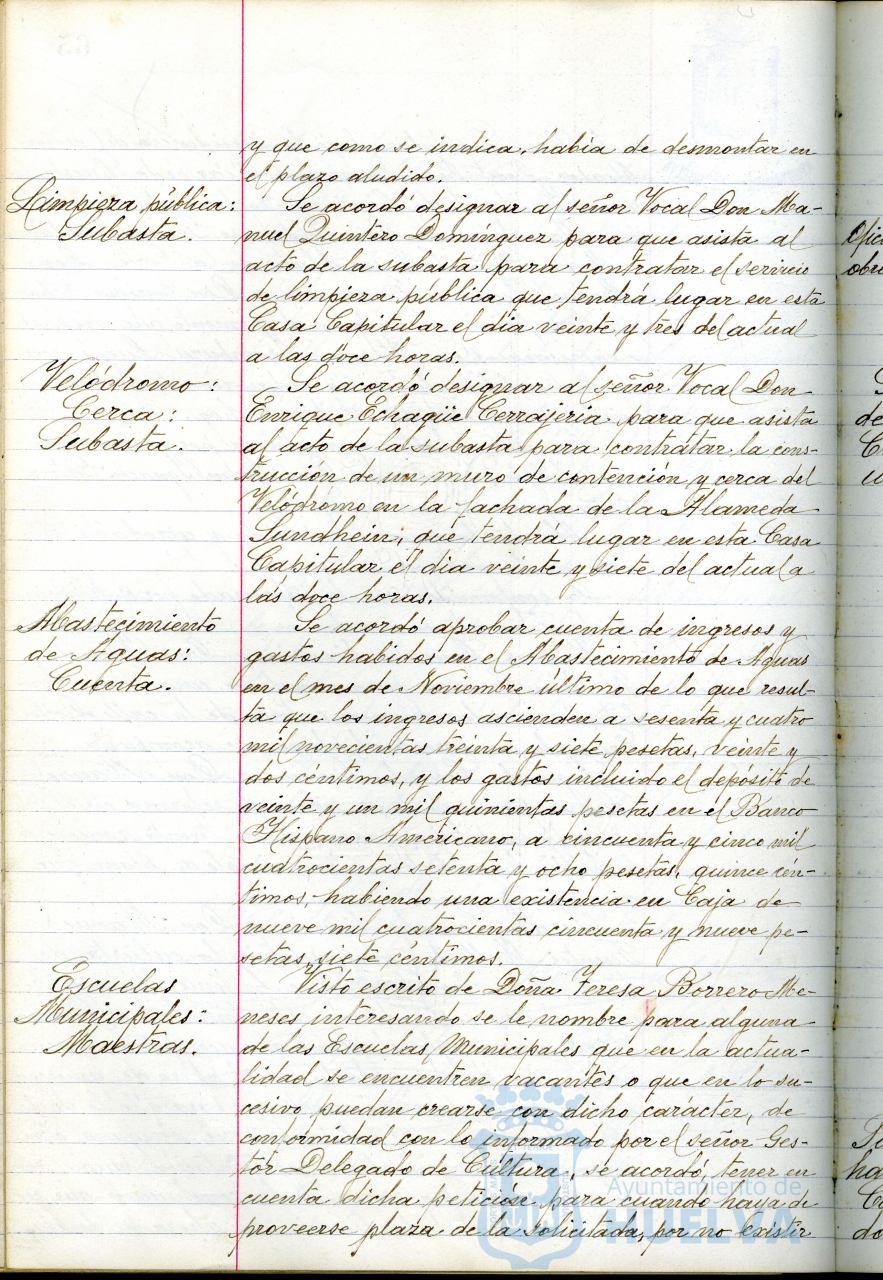 y que como se indica, había de desmontar en
el plazo aludido.
Limpieza pública:
Subasta.
Se acordó designar al señor Vocal Don Ma-
nuel Quintero Domínguez para que asista al
acto de la subasta para contratar el servicio
de limpieza pública que tendrá lugar en esta
Casa Capitular el día veinte y tres del actual
a las doce horas.
Velódromo:
Cerca:
Subasta.
Se acordó designar al señor Vocal Don
Enrique Echagüe Cerrajeria para que asista
al acto de la subasta para contratar la cons-
trucción de un muro de contención y cerca del
Velódromo en la fachada de la Alameda
Sundhein, que tendrá lugar en esta Casa
Capitular el día veinte y siete del actual a
las doce horas.
Abastecimiento
de Aguas:
Cuenta.
Se acordó aprobar cuenta de ingresos y
gastos habidos en el Abastecimiento de Aguas
en el mes de Noviembre último de lo que resul-
ta que los ingresos ascienden a sesenta y cuatro
mil novecientas treinta y siete pesetas, veinte y
dos céntimos, y los gastos incluido el depósito de
veinte y un mil quinientas pesetas en el Banco
Hispano Americano, a cincuenta y cinco mil
cuatrocientas setenta y ocho pesetas, quince cén-
timos, habiendo una existencia en Caja de
nueve mil cuatrocientas cincuenta y nueve pe-
setas, siete céntimos.
Escuelas
Municipales:
Maestras.
Visto escrito de Doña Teresa Borrero Me-
neses interesando se le nombre para alguna
de las Escuelas Municipales que en la actua-
lidad se encuentren vacantes o que en lo su-
cesivo puedan crearse con dicho carácter, de
conformidad con lo informado por el señor Ges-
tor Delegado de Cultura, se acordó, tener en
cuenta dicha petición para cuando haya de
proveerse plaza de la solicitada, por no existir
Ayuntamiento de
HUELVA